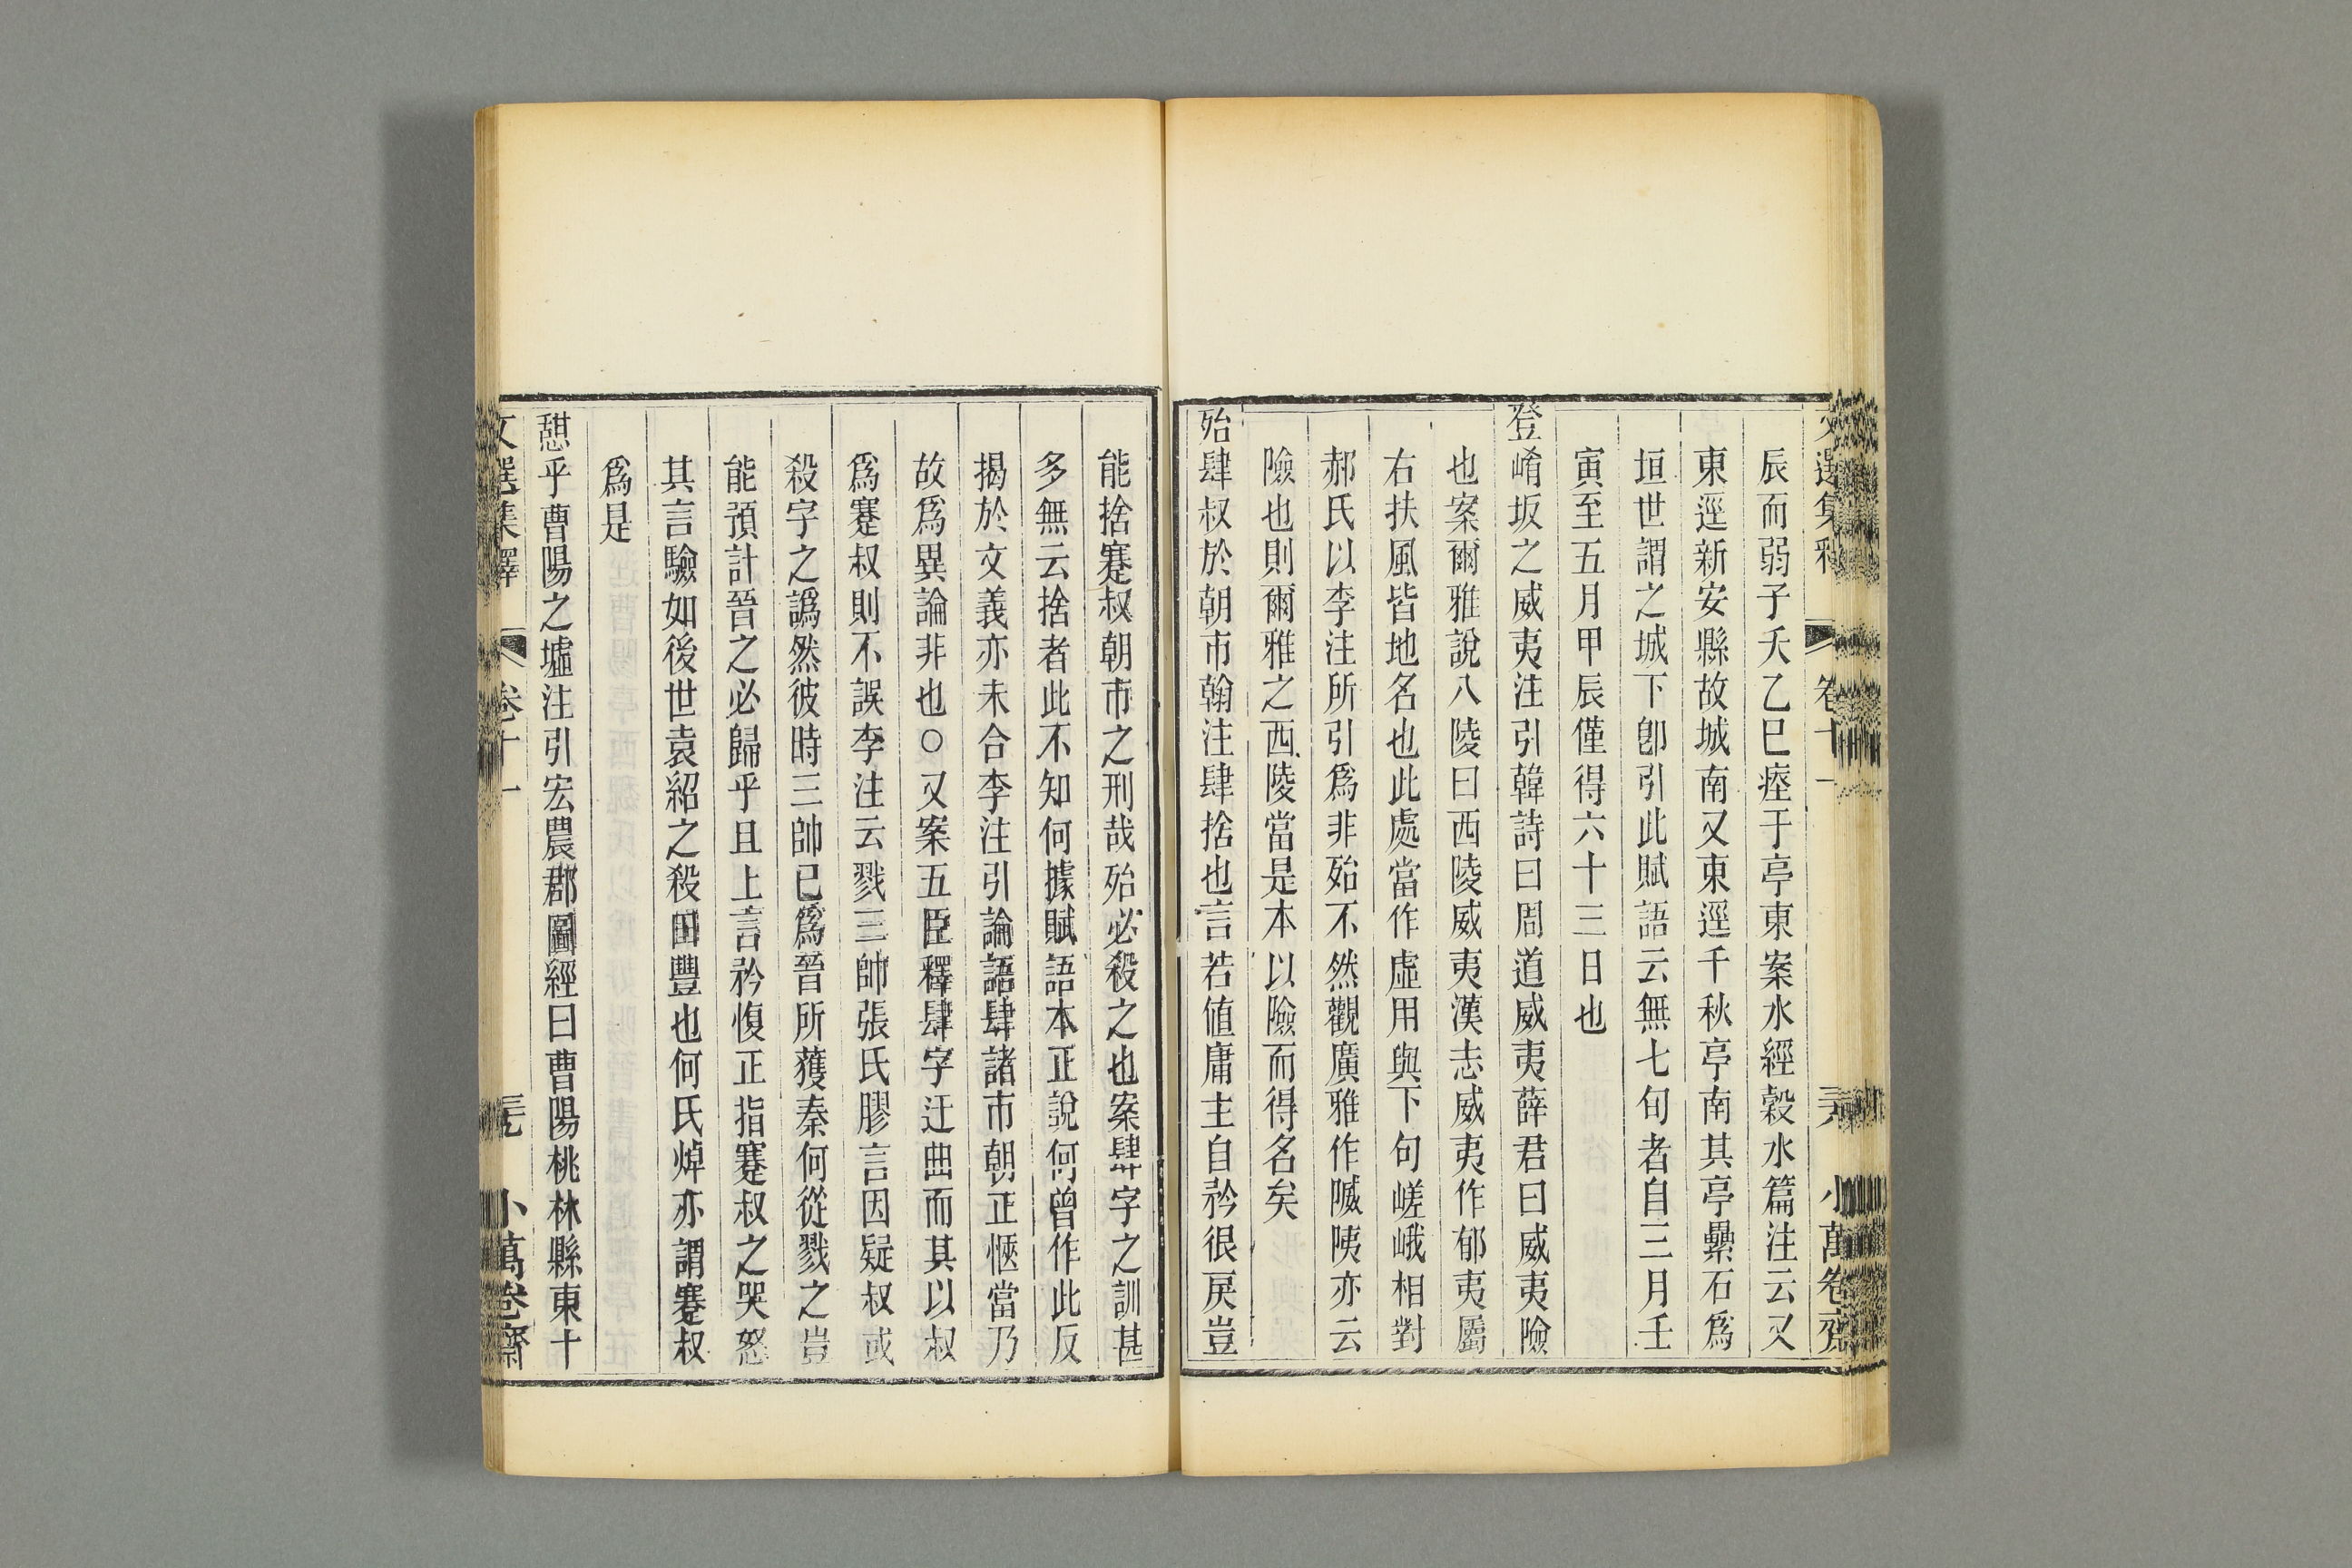 文選集釋 卷十一 三六 小萬卷齋
辰而弱子夭乙巳瘞于亭東案水經穀水篇注云又
東逕新安縣故城南又東逕千秋亭南其亭纍石爲
垣世謂之城下卽引此賦語云無七旬者自三月壬
寅至五月甲辰僅得六十三日也
登崤坂之威夷注引韓詩曰周道威夷薛君曰威夷險
也案爾雅說八陵曰西陵威夷漢志威夷作郁夷屬
右扶風皆地名也此處當作虛用與下句嵯峨相對
郝氏以李注所引爲非殆不然觀廣雅作隇陦亦云
險也則爾雅之西陵當是本以險而得名矣
殆肆叔於朝市翰注肆捨也言若値庸主自矜很戾豈
能捨蹇叔朝市之刑哉殆必殺之也案肆字之訓甚
多無云捨者此不知何據賦語本正說何曾作此反
揭於文義亦未合李注引論語肆諸市朝正愜當乃
故爲異論非也○又案五臣釋肆字迂曲而其以叔
爲蹇叔則不誤李注云戮三帥張氏膠言因疑叔或
殺字之譌然彼時三帥已爲晉所獲秦何從戮之豈
能預計晉之必歸乎且上言矜愎正指蹇叔之哭怒
其言驗如後世袁紹之殺田豐也何氏焯亦謂蹇叔
爲是
憇乎曹陽之墟注引宏農郡圖經曰曹陽桃林縣東十
文選集釋 卷十一 三七 小萬卷齋